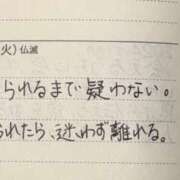 火) 仏滅
られるまで疑わない。
られたら、迷わず離れる。